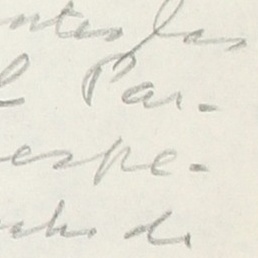 ntes las
l Par-
espe-
de